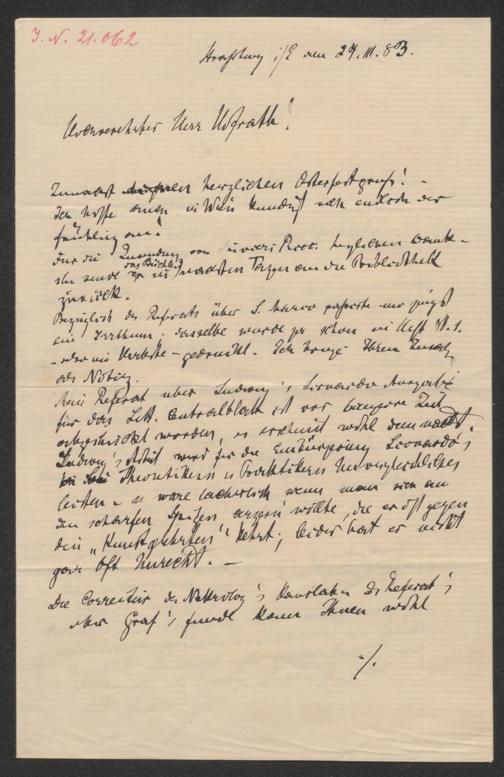 J. N. 21.062
Straßburg i/E den 24. III. 83.
Hochverehrter Herr Hofrath!
Zunächst herzlichen Osterfestgruß! –
Ich hoffe auch in Wien kündigt sich endlich der
Frühling an.
Für die Zusendung von herzlichen Dank –
ich sende das Büchlein in nächsten Tagen an die Bibliothek
zurück.
Bezüglich des Referats über S. Marco passirte mir jüngst
ein Irrthum – dasselbe wurde ja schon in Heft
– oder im Herbste – gedruckt. Ich bringe Ihrem
als Notiz.
Mein Referat über Ludwig's Leonardo Ausgabe
für das Litt. Centralblatt ist vor längerer Zeit
abgeschickt worden, es erscheint wohl
Ludwig's Arbeit wird für die Einbürgerung Leonardo's
bei Theoretikern u Praktikern Unvergleichliches
leisten – es wäre lächerlich wenn man sich an
den scharfen Spitzen wollte, die er oft gegen
die „Kunstgelehrten" kehrt; leider hat er nicht
gar oft Unrecht. –
Die Correctur des Nekrolog's des Referat's
über Graf's kann Ihnen wohl
./.